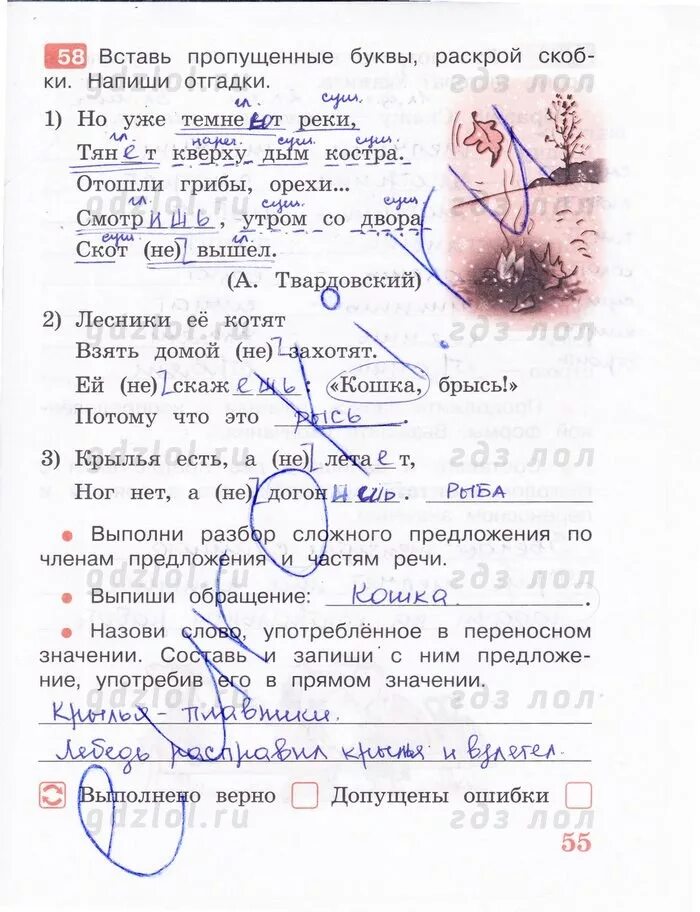 58 Вставь пропущенные буквы, раскрой скоб-
ки. Напиши отгадки.
гл. сущ.
1) Но уже темнеют реки,
гл. нареч. сущ. сущ.
Тянет кверху дым костра.
Отошли грибы, орехи...
гл. сущ. сущ.
Смотришь, утром со двора
сущ. гл.
Скот (не) вышел.
(А. Твардовский)
2) Лесники её котят
Взять домой (не) захотят.
Ей (не) скажешь: «Кошка, брысь!»
Потому что это рысь.
3) Крылья есть, а (не) летает,
Ног нет, а (не) догонишь. РЫБА
• Выполни разбор сложного предложения по
членам предложения и частям речи.
• Выпиши обращение: Кошка.
• Назови слово, употреблённое в переносном
значении. Составь и запиши с ним предложе-
ние, употребив его в прямом значении.
Крылья - плавники.
Лебедь расправил крылья и взлетел.
Выполнено верно Допущены ошибки
55
gdzlol.ru
гдз лол